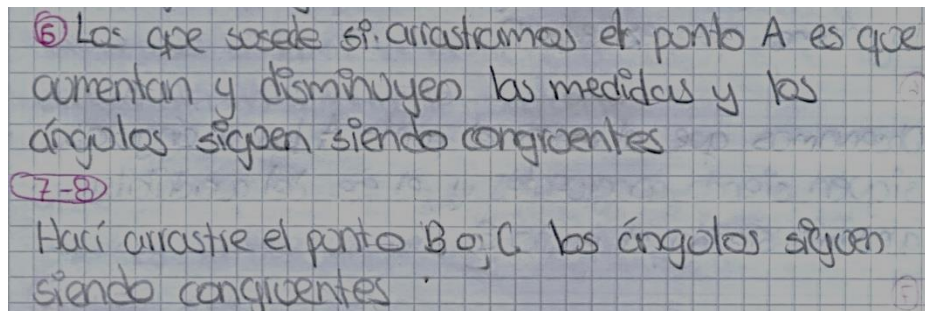 ⑥ Los que sosede si arrastramos el punto A es que
aumentan y disminuyen las medidas y los
ángulos siguen siendo congruentes
7-8
Hací arrastre el punto B o C los ángulos siguen
siendo congruentes.